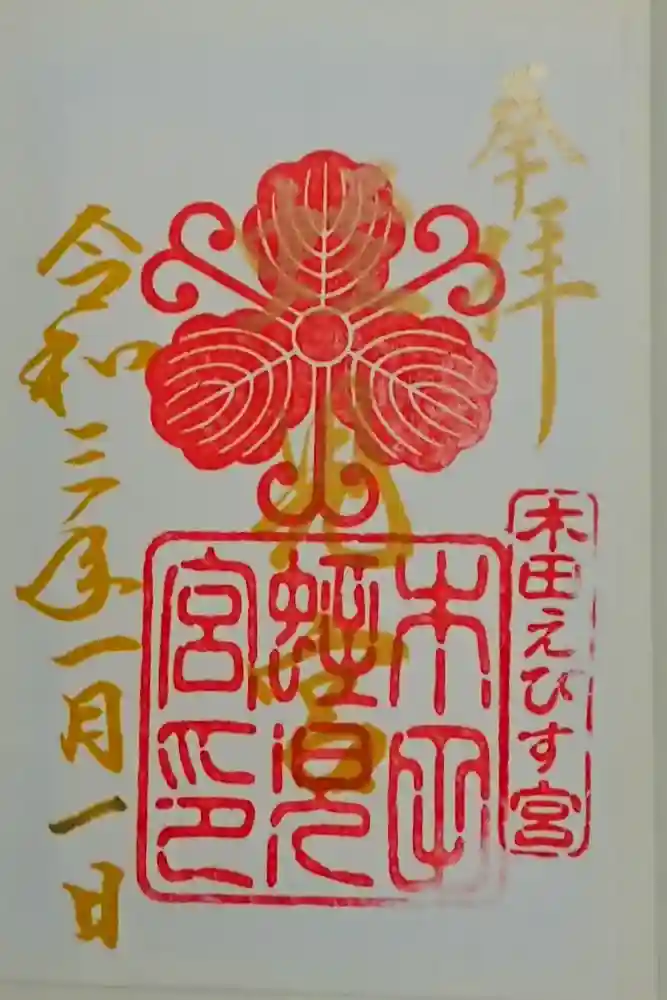 奉拝
木田えびす宮
木
蛭兒
宮印
令和三年一月一日